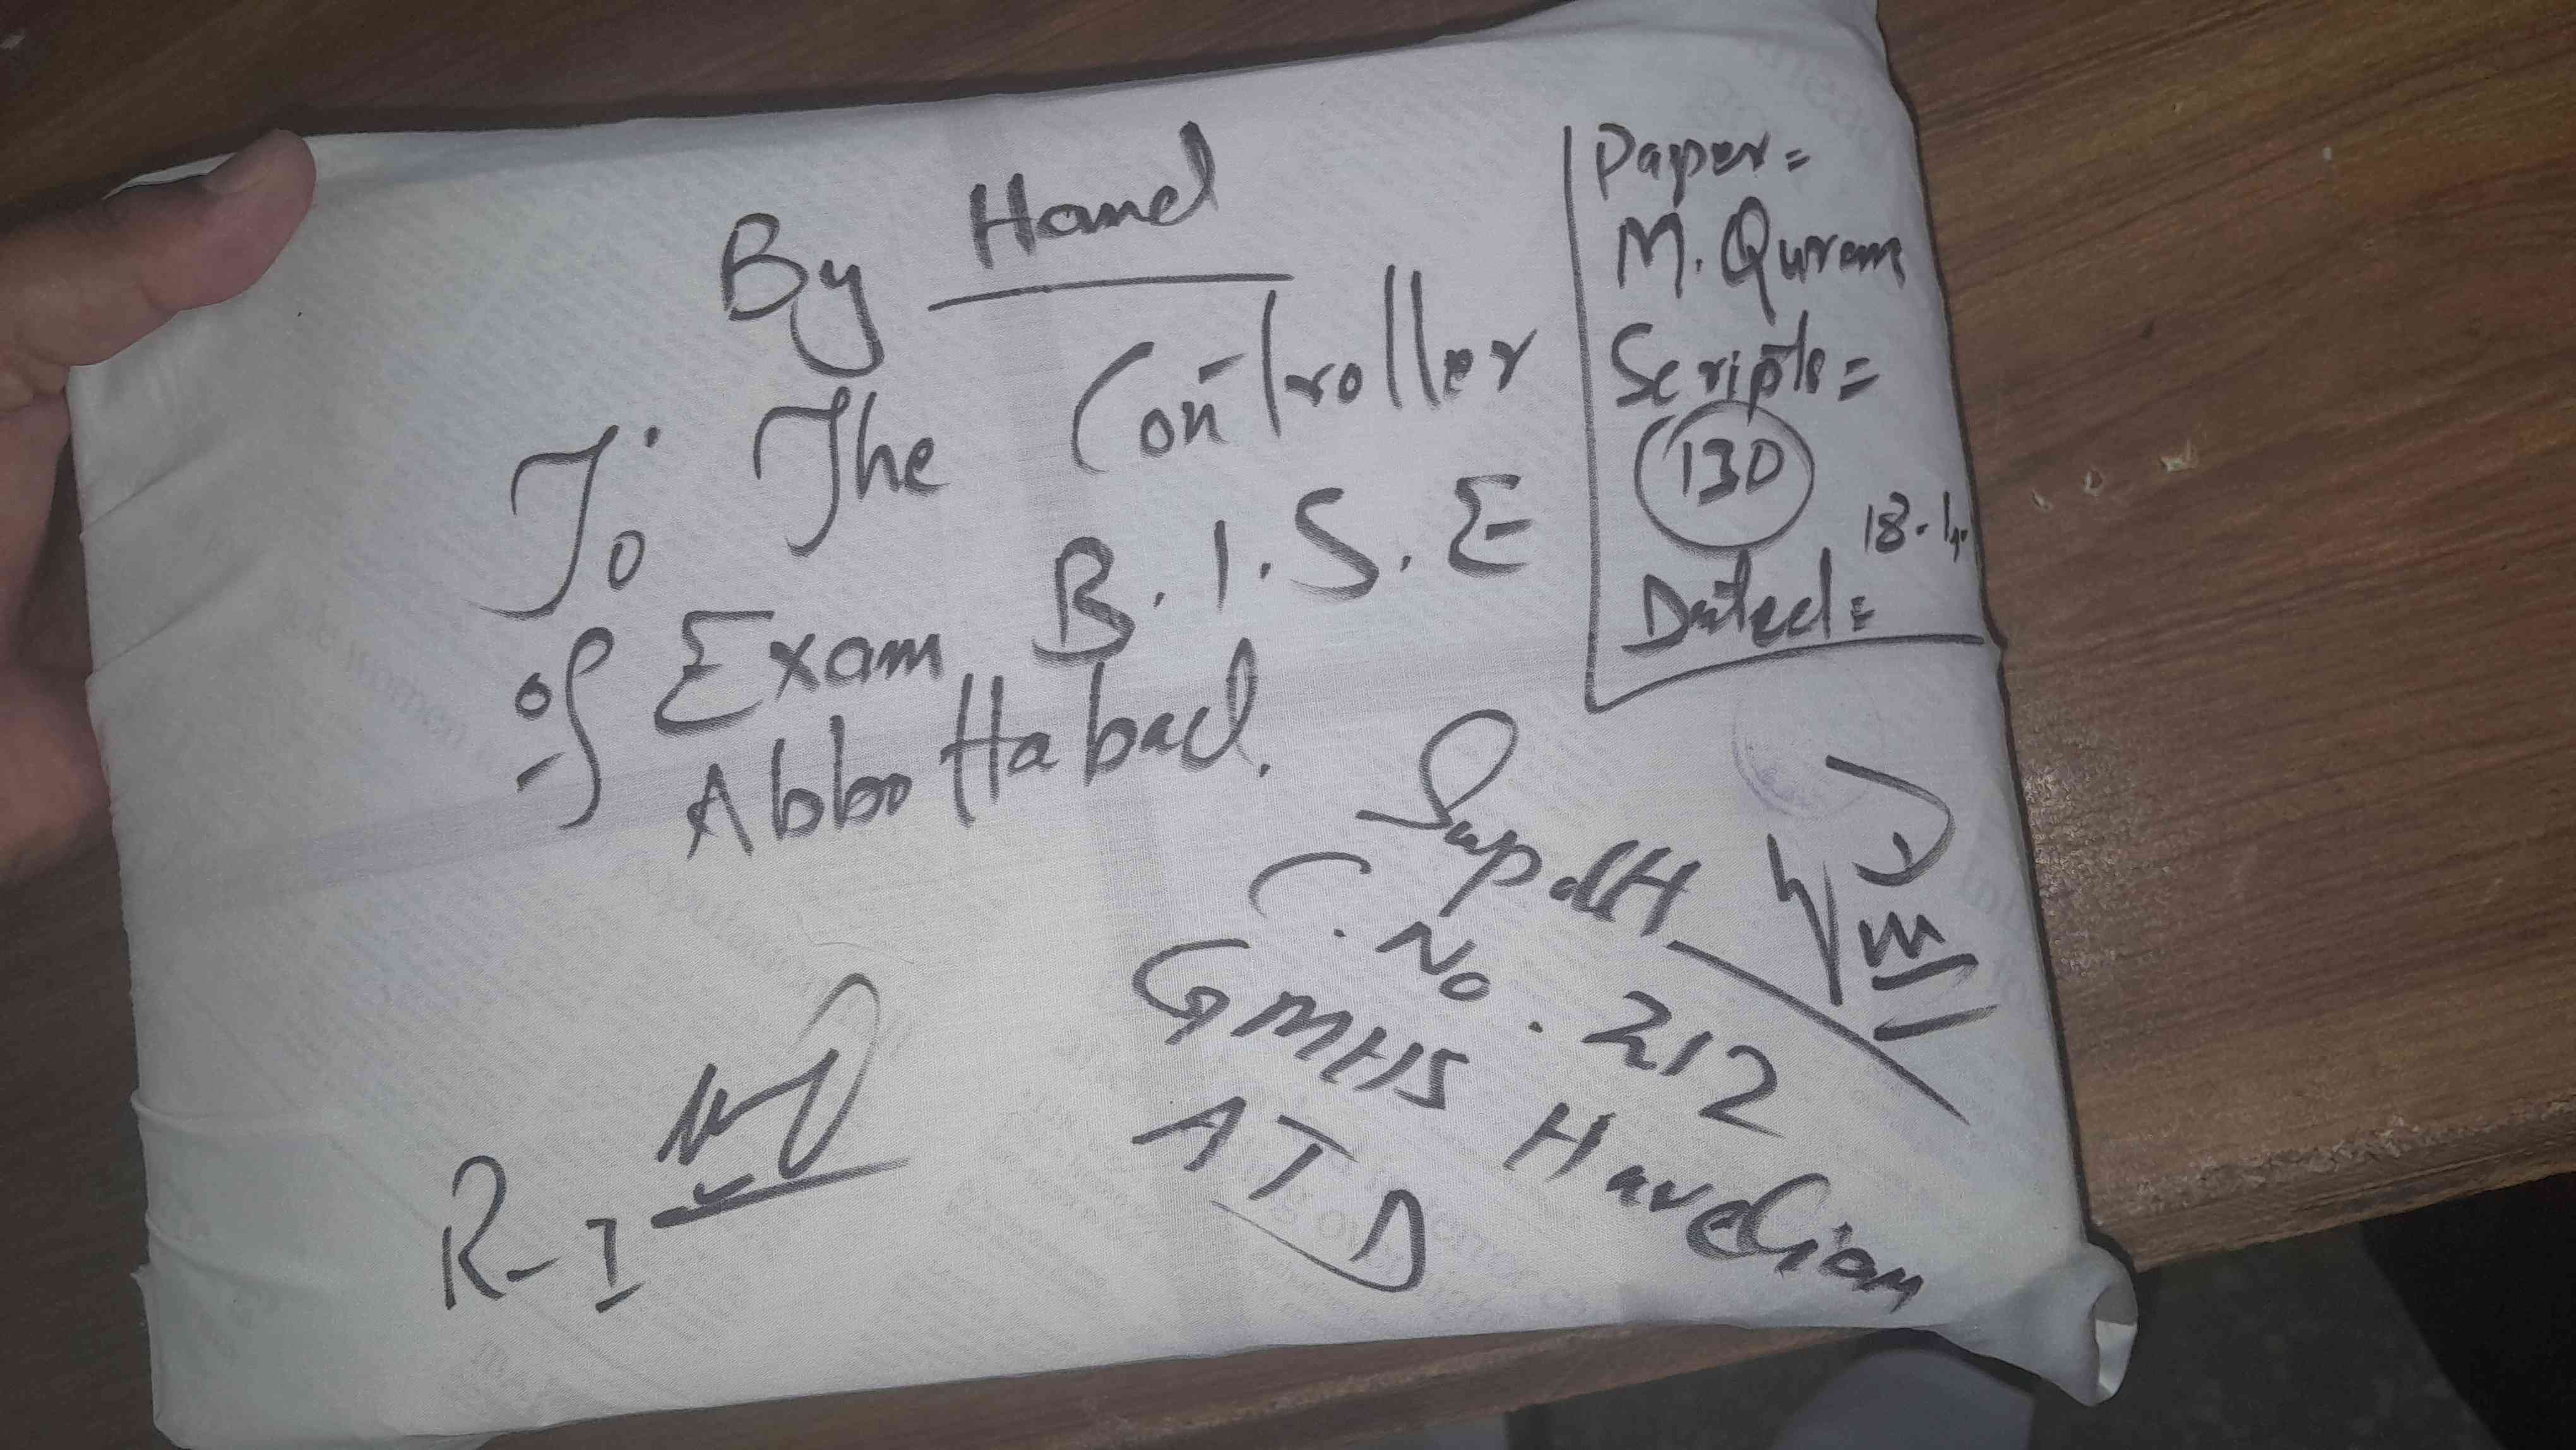 By Hand
To, The Controller
of Exam B.I.S.E
Abbottabad.
Paper=
M. Quran
Scripts=
130
Dated= 18.
Supdtt
C. No. 212
GMHS Havelian
ATD
R-I